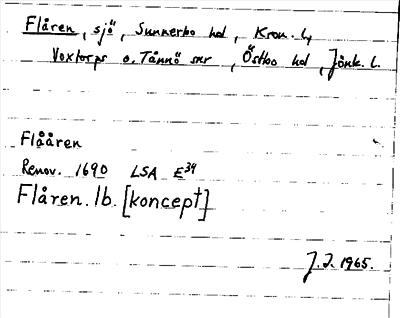 Flåren, sjö, Sunnerbo hd, Kron. l,
Voxtorps o. Tånnö snr, Östbo hd, Jönk. l.
Flååren
Renov. 1690 LSA E³⁴
Flåren. lb. [koncept]
J.I. 1965.